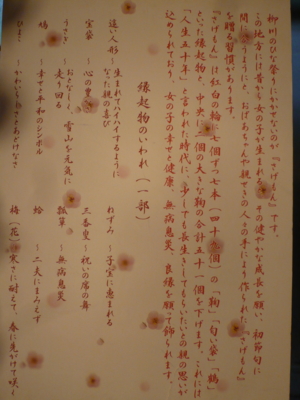 柳川のひな祭りにかかせないのが『さげもん』です。
この地方には昔から女の子が生まれると、その健やかな成長を願い、初節句に
間に合うようにと、おばあちゃんや親せきの人々の手により作られた『さげもん』
を贈る習慣があります。
『さげもん』は紅白の輪に七個ずつ七本（四十九個）の「鞠」「匂い袋」「鶴」
といった縁起物と、中央に二個の大きな鞠の合計五十一個を下げます。これには
「人生五十年」と言われた時代に、少しでも長生きしてもらいたいとの親の思いが
込められており、女の子の幸せと健康、無病息災、良縁を願って飾られます。
縁起物のいわれ（一部）
這い人形 ～ 生まれてハイハイするように
なった親の喜び
宝袋 ～ 心の豊
うさぎ ～ おとなしく、雪山を元気に
走り回る
鳩 ～ 幸せと平和のシンボル
ひよこ ～ かわいらしさとあどけなさ
ねずみ ～ 子宝に恵まれる
三番叟 ～ 祝いの席の舞
瓢箪 ～ 無病息災
蛤 ～ 二夫にまみえず
梅（花） ～ 寒さに耐えて、春に先がけて咲く